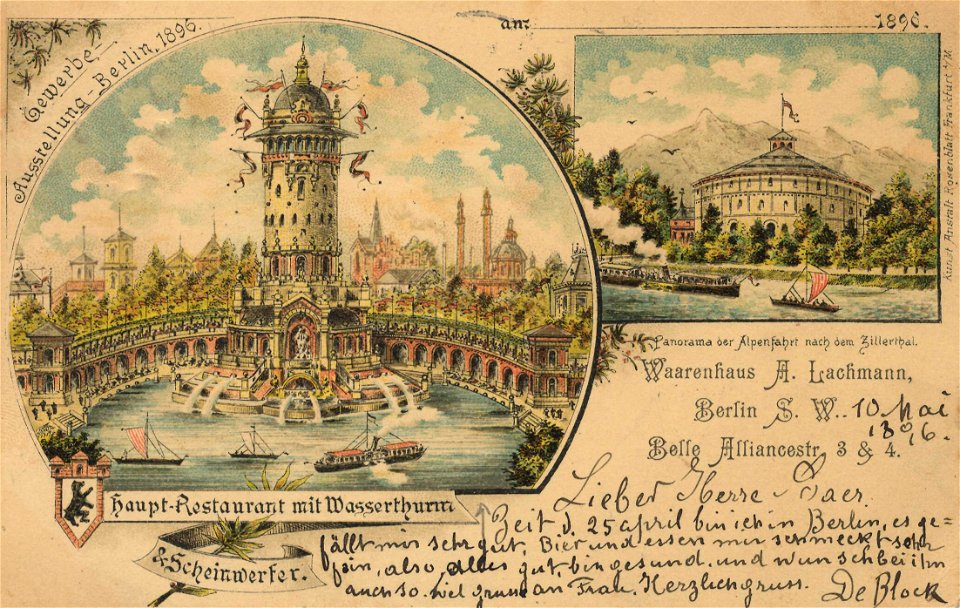 Gewerbe-
Ausstellung-Berlin, 1896.
am
1896.
Kunst Anstalt Rosenblatt Frankfurt a/M
Panorama der Alpenfahrt nach dem Zillerthal.
Waarenhaus A. Lachmann,
Berlin S. W.. 10 Mai
1896.
Belle Alliancestr. 3 & 4.
Haupt-Restaurant mit Wasserthurm
& Scheinwerfer.
Lieber Herre
Zeit d. 25 april bin ich in Berlin, es ge-
fällt mir sehr gut, Bier und essen mir schmeckt sehr
fein, also, alles gut, bin gesund. und wunschbei ihn
auch so. viel gruss an Frau, Herzlich gruss. De Block